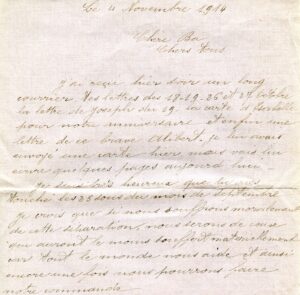 Le 4 Novembre 1914
Chère
Chers Tous
J'ai reçu hier soir un long
courrier des lettres des 18-19-26 et 27 octobre
la lettre de Joseph du 19 la carte d'
pour notre anniversaire et enfin une
lettre de ce brave Albert. Je lui avais
envoyé une carte hier
quelques pages aujourd'hui
Je suis très heureux que
touché les 35 sous du mois de septembre
je crois que si nous souffrons moralement
de cette séparation, nous serons de ceux
qui auront le moins souffert matériellement
car tout le monde nous aide et ainsi
encore une fois nous pourrons faire
notre